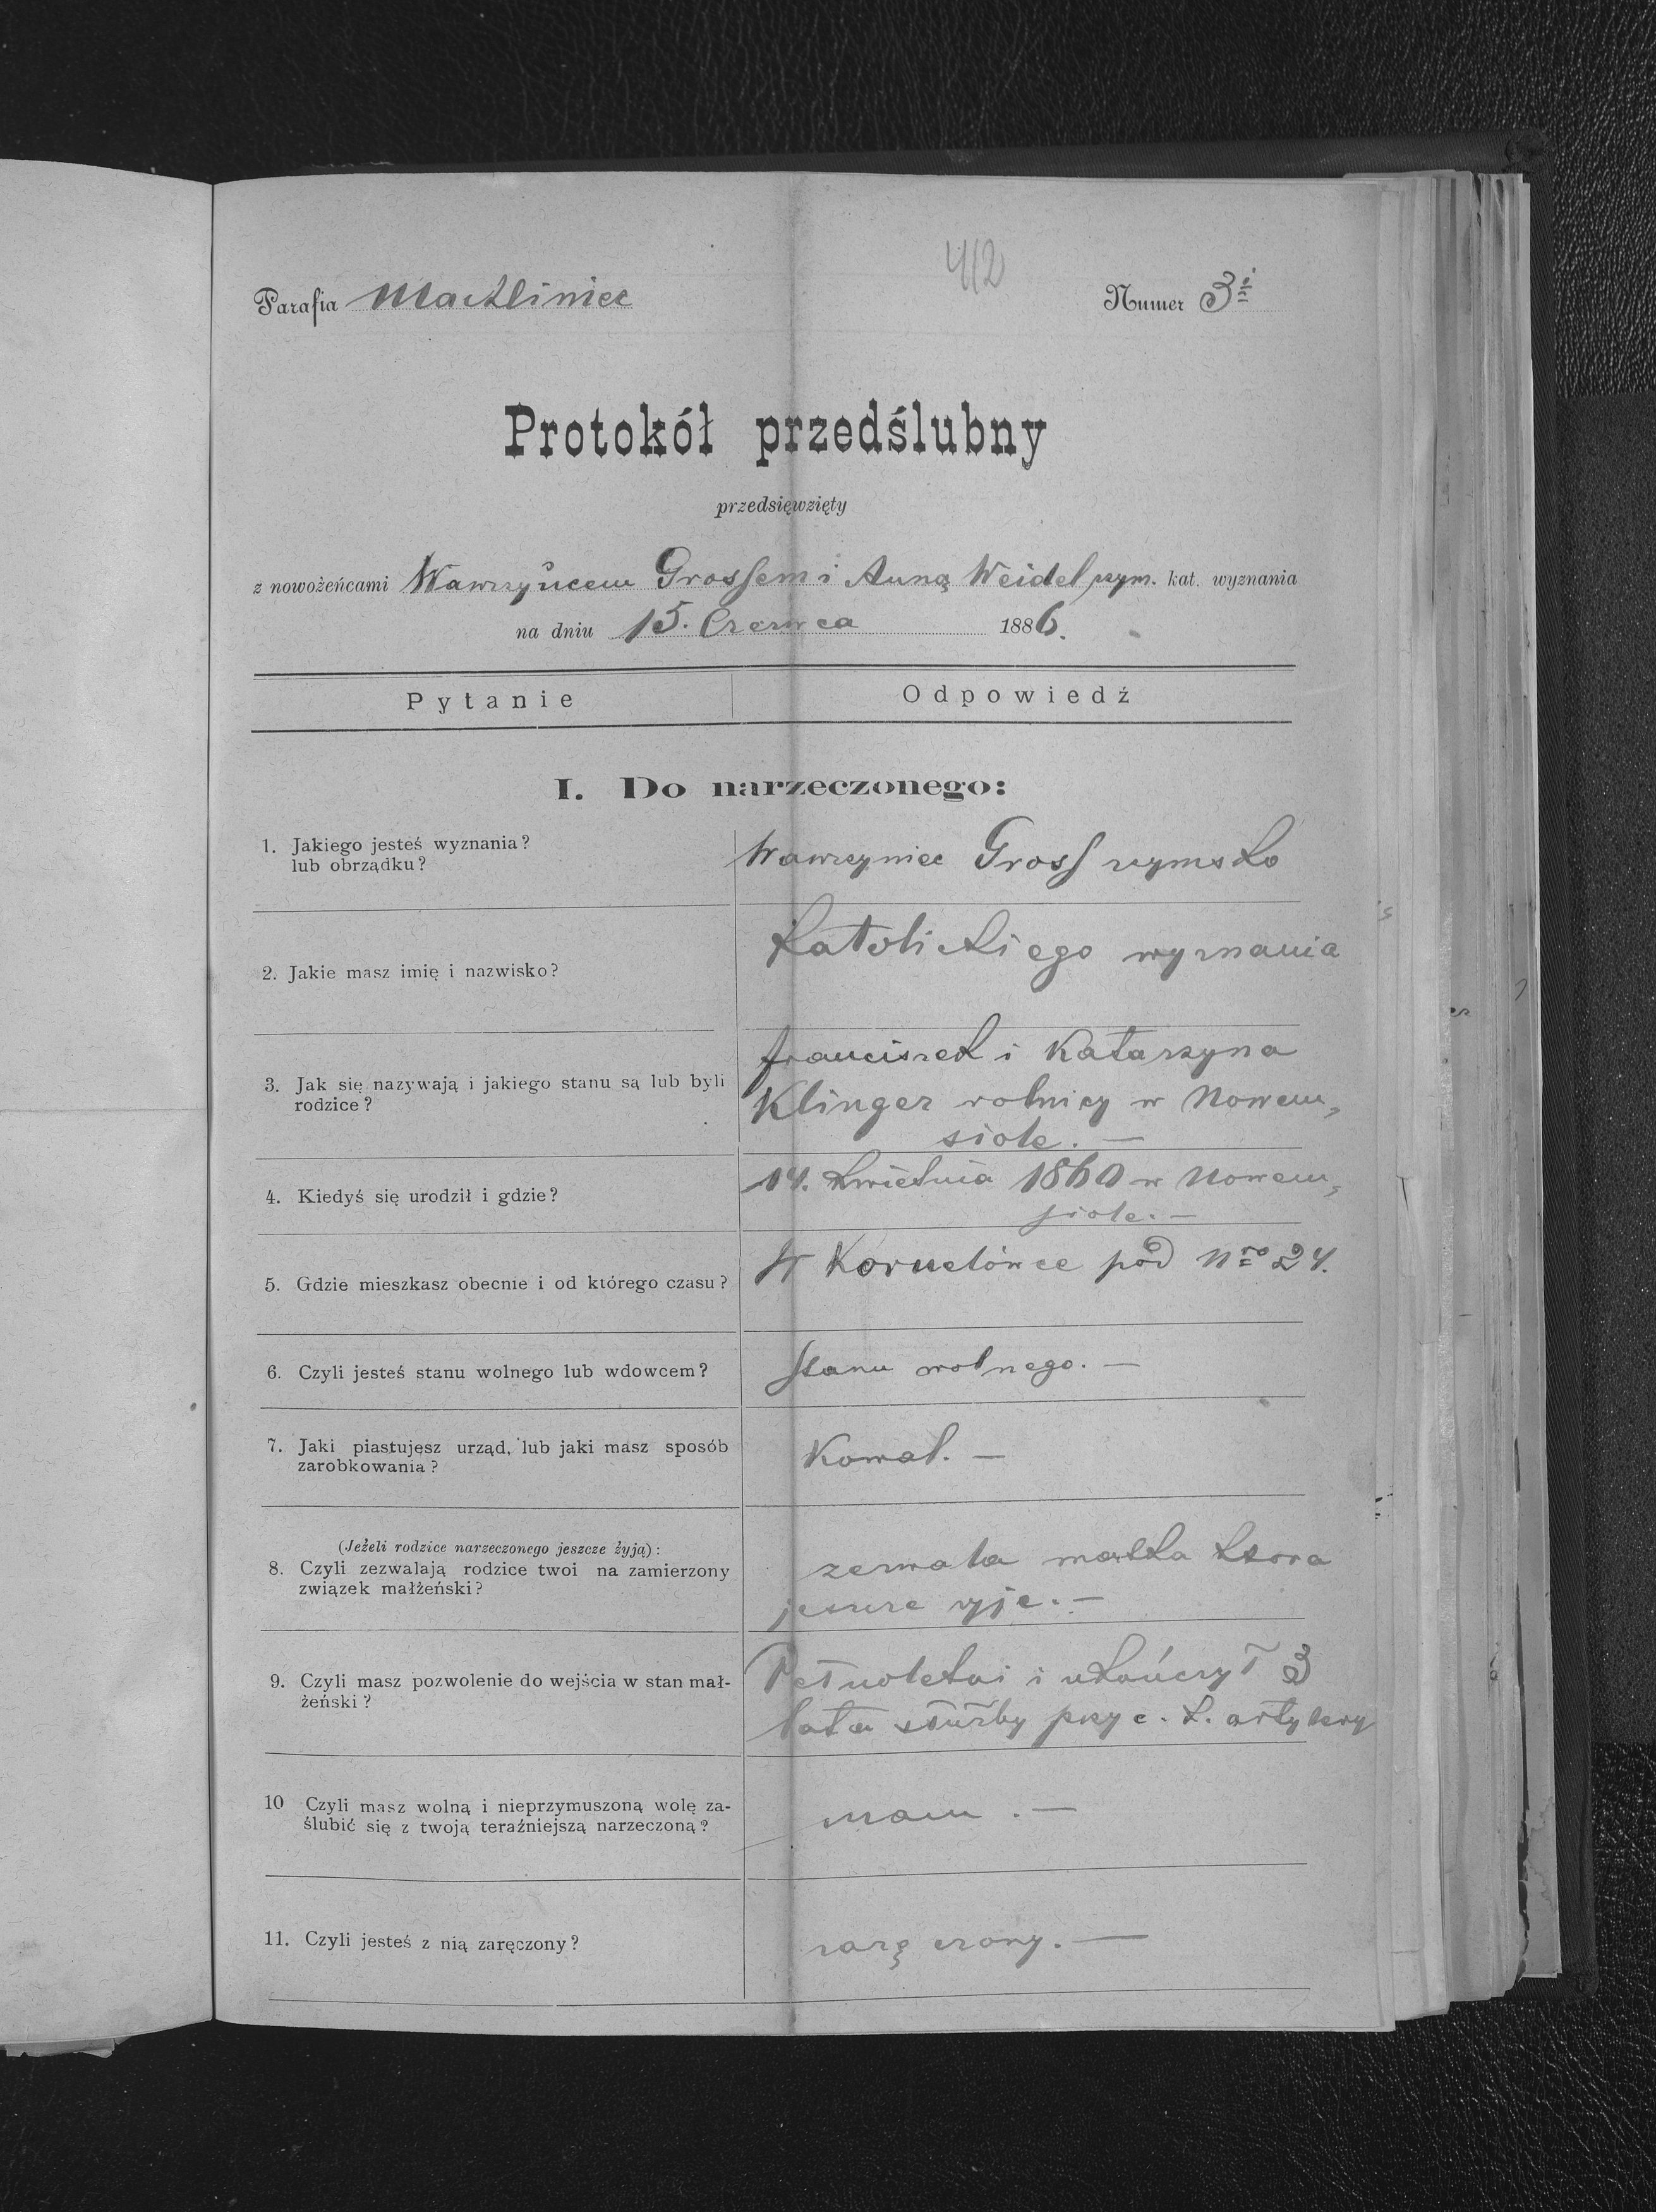 412
Parafia Machliniec Numer 3i
Protokół przedślubny
przedsięwzięty
z nowożeńcami Wawrzyńcem Grossem i Anną Weidel rzym. kat. wyznania
na dniu 15. Czerwca 1886.
Pytanie Odpowiedź
I. Do narzeczonego:
1. Jakiego jesteś wyznania?
lub obrządku?
Wawrzyniec Gross rzymsko
2. Jakie masz imię i nazwisko?
katolickiego wyznania
3. Jak się nazywają i jakiego stanu są lub byli
rodzice?
Franciszek i Katarzyna
Klinger rolnicy w Nowem,
siole. —
4. Kiedyś się urodził i gdzie?
14. kwietnia 1860 w Nowem,
siole. —
5. Gdzie mieszkasz obecnie i od którego czasu?
W Kornelówce pod Nro 24.
6. Czyli jesteś stanu wolnego lub wdowcem?
Stanu wolnego. —
7. Jaki piastujesz urząd, lub jaki masz sposób
zarobkowania?
Kowal. —
(Jeżeli rodzice narzeczonego jeszcze żyją):
8. Czyli zezwalają rodzice twoi na zamierzony
związek małżeński?
zezwala matka ktora
jeszcze żyje. —
9. Czyli masz pozwolenie do wejścia w stan mał-
żeński?
Pełnoletni i ukończył 3
lata służby przy c. k. artylery
10 Czyli masz wolną i nieprzymuszoną wolę za-
ślubić się z twoją teraźniejszą narzeczoną?
mam. —
11. Czyli jesteś z nią zaręczony?
zaręczony. —